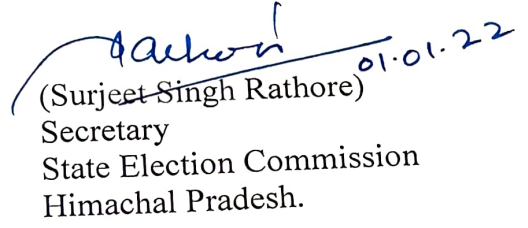 01.01.22
(Surjeet Singh Rathore)
Secretary
State Election Commission
Himachal Pradesh.